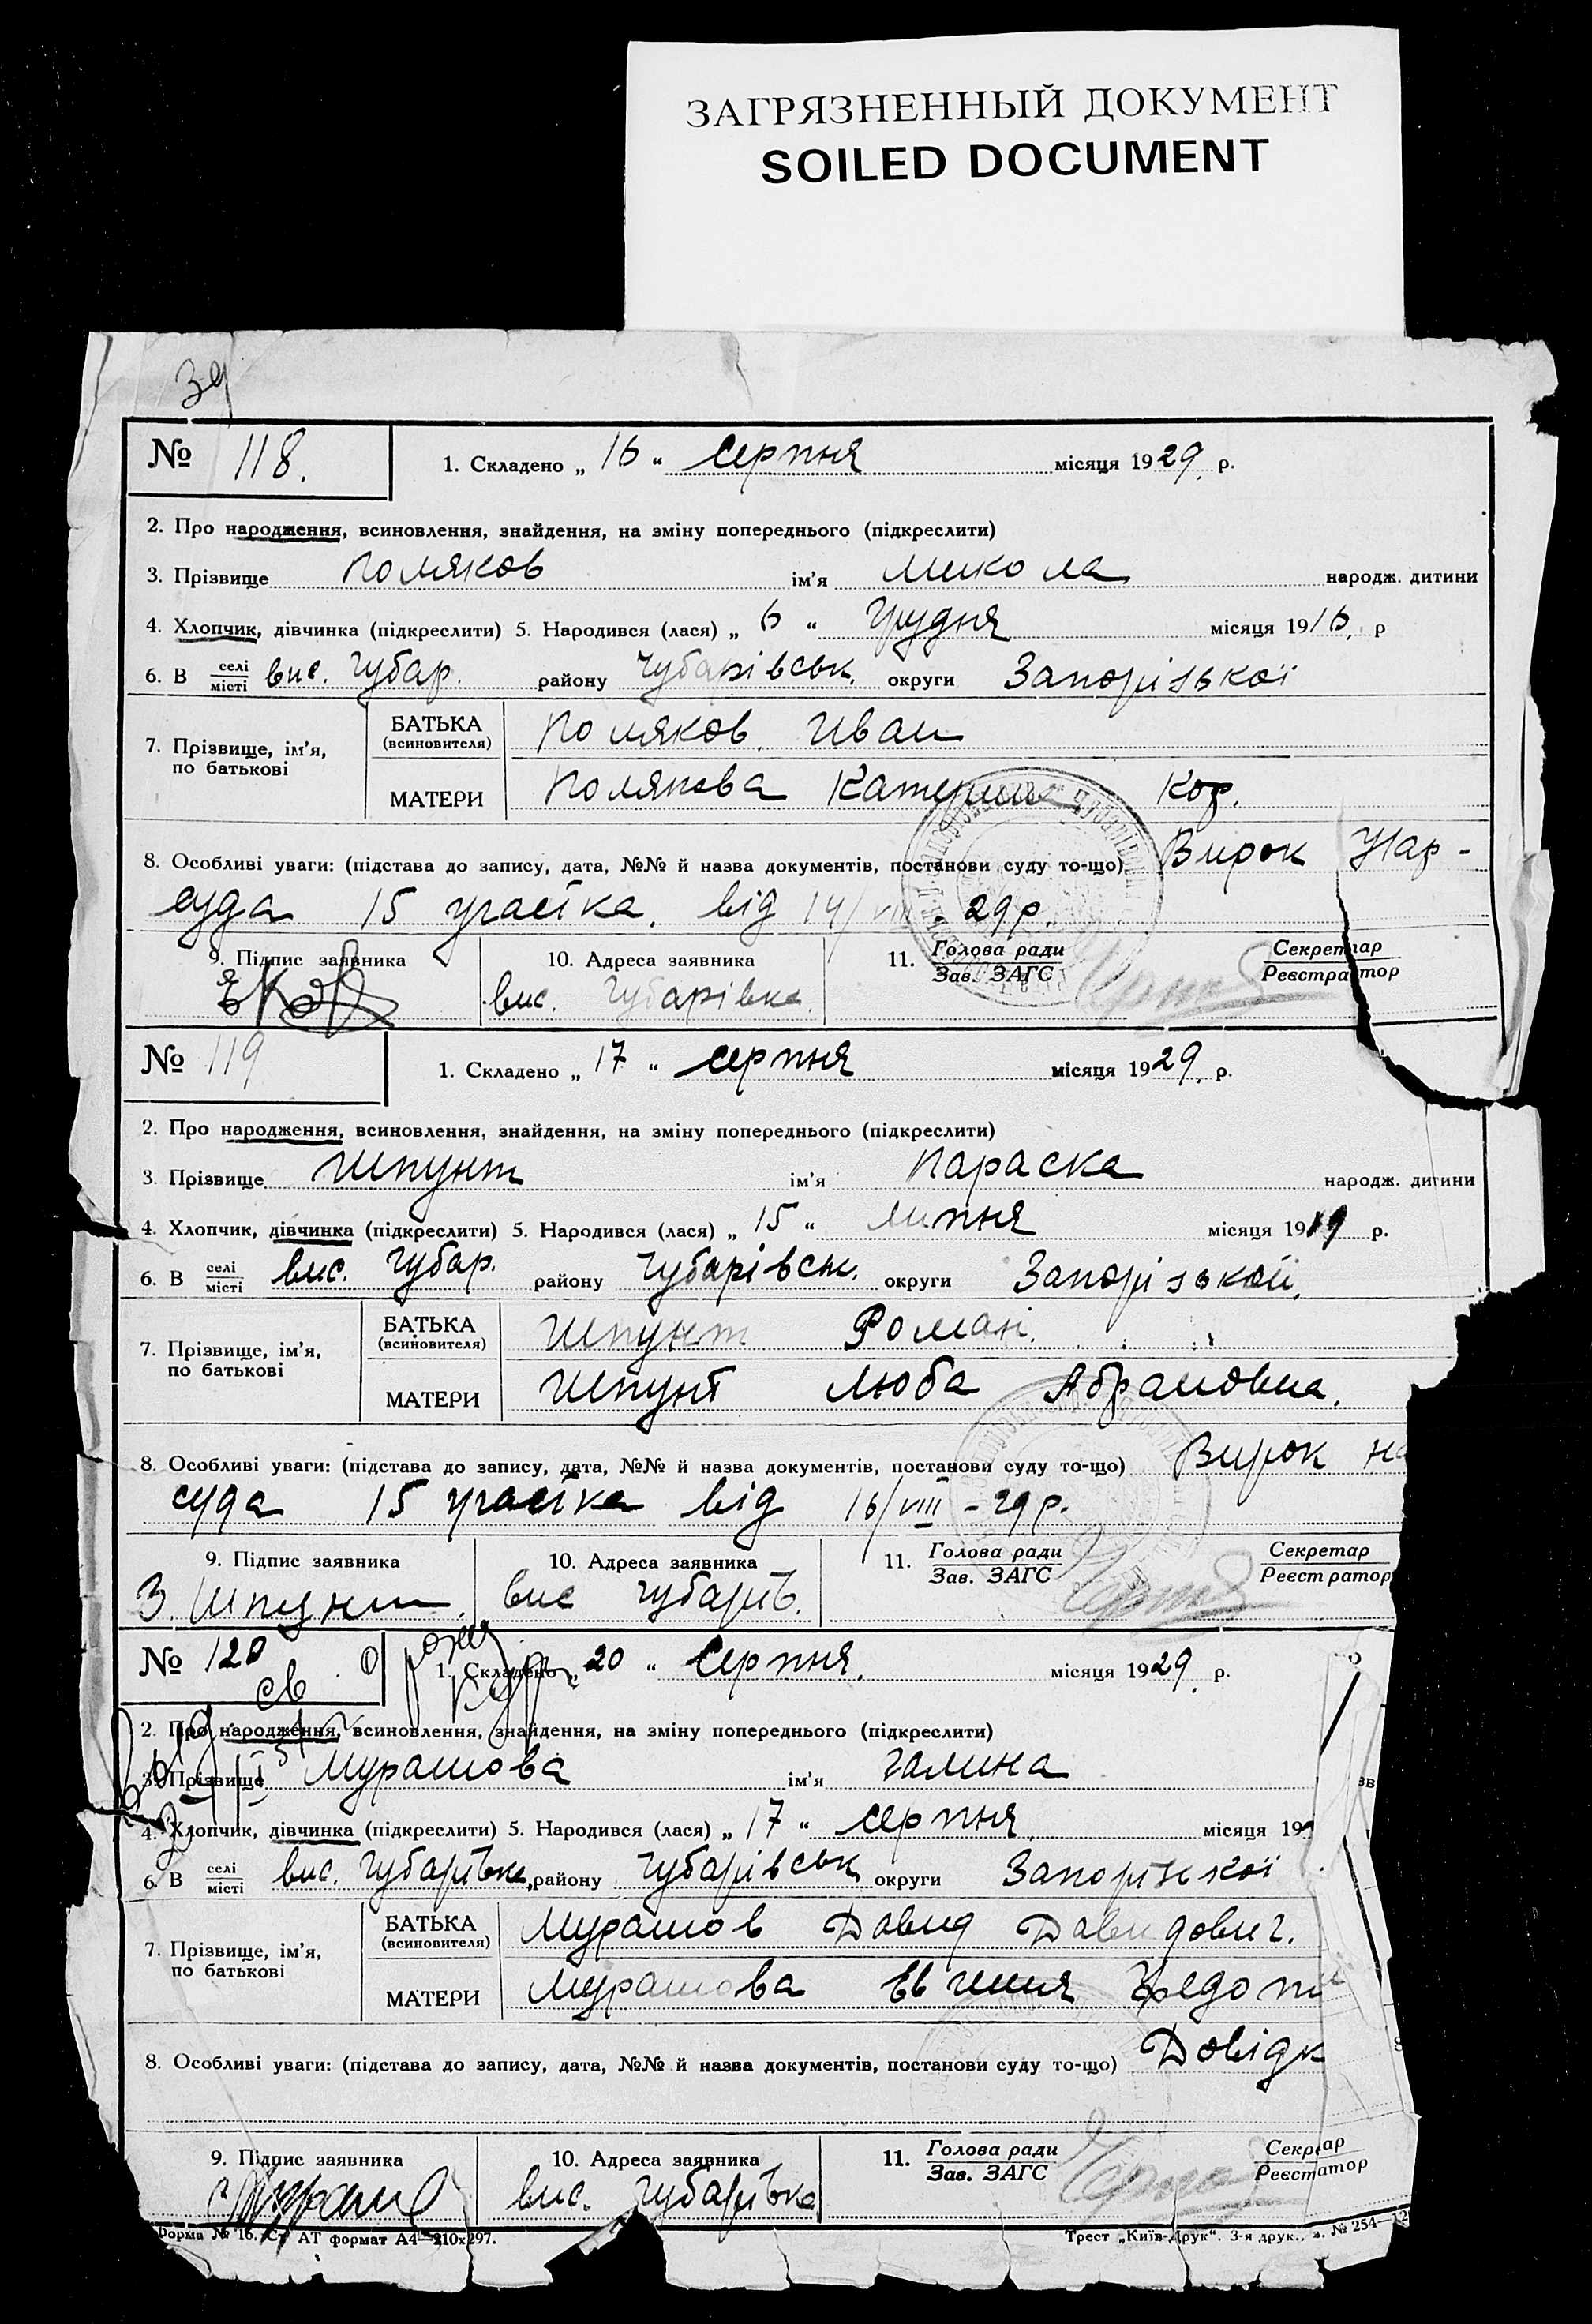 ЗАГРЯЗНЕННЫЙ ДОКУМЕНТ
SOILED DOCUMENT
39
№ 118. 1. Складено „ 16 “ Серпня місяця 1929. р.
2. Про народження, всиновлення, знайдення, на зміну попереднього (підкреслити)
3. Прізвище Поляков ім'я Микола народж. дитини
4. Хлопчик, дівчинка (підкреслити) 5. Народився (лася) „ 6 “ Грудня місяця 1916. р
6. В селі місті вис. Чубар. району Чубарівськ. округи Запорізької
7. Прізвище, ім'я, по батькові
БАТЬКА (всиновителя) Поляков. Иван
МАТЕРИ Полякова Катерина Кор.
8. Особливі уваги: (підстава до запису, дата, №№ й назва документів, постанови суду то-що) Вирок Нар-
суда 15 участка. від 14/VIII 29р.
9. Підпис заявника 10. Адреса заявника 11. Голова ради Зав. ЗАГС Секретар Реєстратор
вис. Чубарівка.
№ 119 1. Складено „ 17 “ Серпня місяця 1929. р.
2. Про народження, всиновлення, знайдення, на зміну попереднього (підкреслити)
3. Прізвище Шпунт ім'я Параска народж. дитини
4. Хлопчик, дівчинка (підкреслити) 5. Народився (лася) „ 15 “ липня місяця 1919 р.
6. В селі місті вис. Чубар. району Чубарівськ. округи Запорізькой.
7. Прізвище, ім'я, по батькові
БАТЬКА (всиновителя) Шпунт Роман.
МАТЕРИ Шпунт Люба Абрамовна.
8. Особливі уваги: (підстава до запису, дата, №№ й назва документів, постанови суду то-що) Вирок на
суда 15 участка від 16/VIII - 29р.
9. Підпис заявника 10. Адреса заявника 11. Голова ради Зав. ЗАГС Секретар Реєстратор
З. Шпунт. вис Чубарів.
№ 120 1. Складено „ 20 “ Серпня. місяця 1929. р.
2. Про народження, всиновлення, знайдення, на зміну попереднього (підкреслити)
3. Прізвище Мурашова ім'я Галина
4. Хлопчик, дівчинка (підкреслити) 5. Народився (лася) „ 17 “ серпня. місяця 19
6. В селі місті вис. Чубарівка, району Чубарівськ округи Запорізької
7. Прізвище, ім'я, по батькові
БАТЬКА (всиновителя) Мурашов Давид Давидович.
МАТЕРИ Мурашова Евгения
8. Особливі уваги: (підстава до запису, дата, №№ й назва документів, постанови суду то-що) Довідк
9. Підпис заявника 10. Адреса заявника 11. Голова ради Зав. ЗАГС Секретар Реєстратор
вис. Чубарівка
Форма № 16. Ст АТ формат А4—210х297. Трест „Київ-Друк“. 3-я друк., з. № 254—